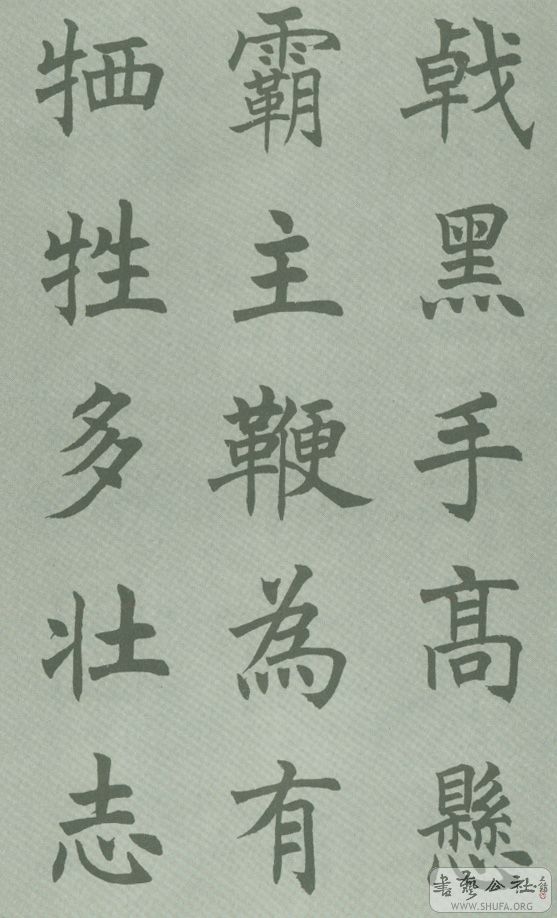 戟黑手髙懸
霸主鞭為有
牺牲多壮志
書藝公社
WWW.SHUFA.ORG